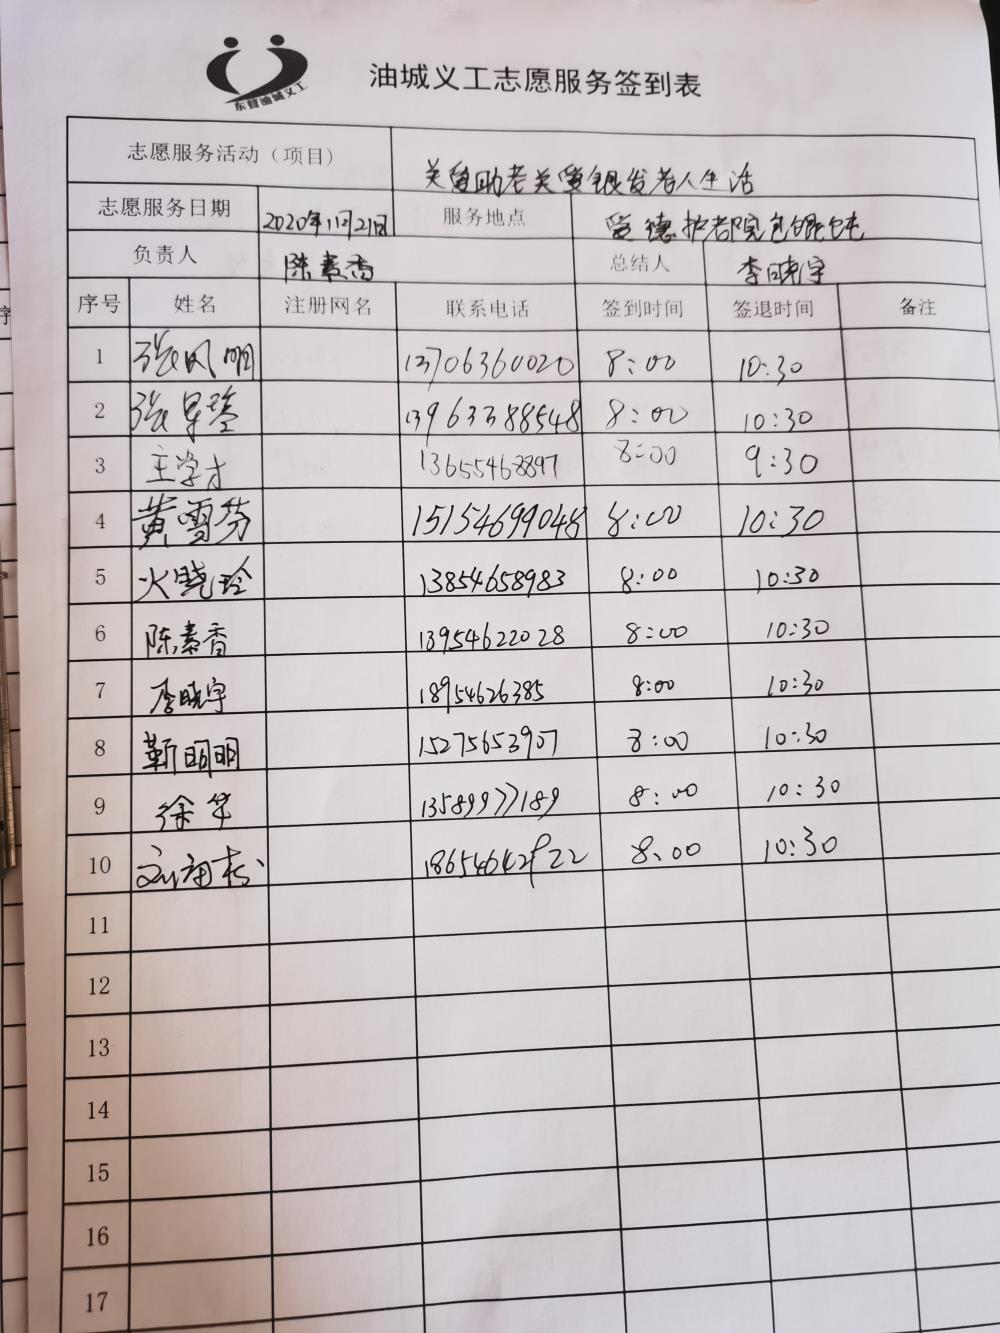 东营油城义工
油城义工志愿服务签到表
志愿服务活动（项目） 关爱助老关爱银发老人生活
志愿服务日期 2020年11月21日 服务地点 爱德护老院包馄饨
负责人 陈素香 总结人 李晓宇
序号 姓名 注册网名 联系电话 签到时间 签退时间 备注
1 张凤明 13706360020 8:00 10:30
2 张早莹 13963388548 8:00 10:30
3 王学才 13655468897 8:00 9:30
4 黄雪芬 15154699048 8:00 10:30
5 火晓玲 13854658983 8:00 10:30
6 陈素香 13954622028 8:00 10:30
7 李晓宇 18954626385 8:00 10:30
8 靳明明 15275653907 8:00 10:30
9 徐华 13589977189 8:00 10:30
10 刘 18654642922 8:00 10:30
11
12
13
14
15
16
17